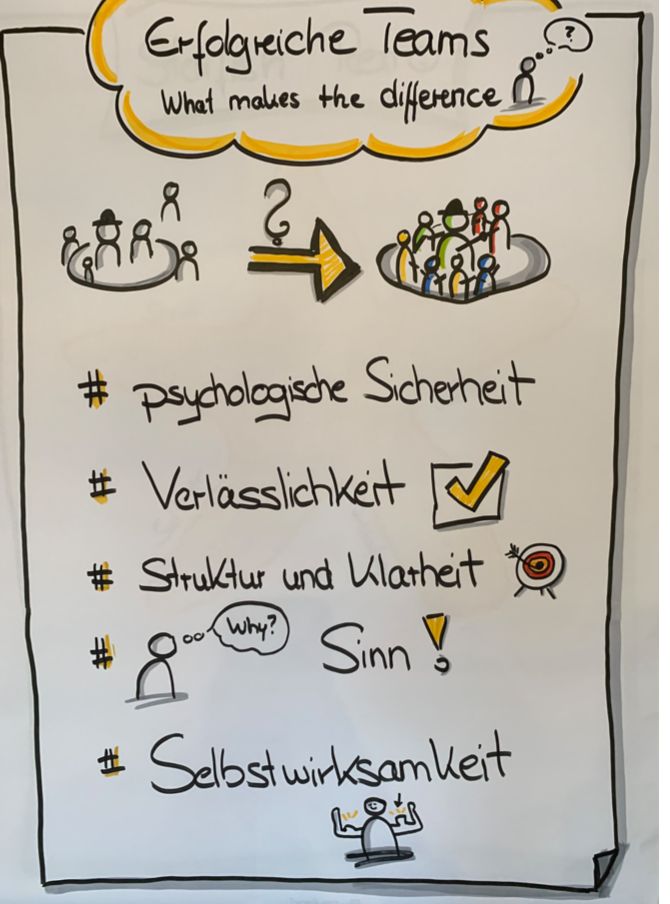 Erfolgreiche Teams
?
What makes the difference
?
# psychologische Sicherheit
# Verlässlichkeit
# Struktur und Klarheit
# Why? Sinn!
# Selbstwirksamkeit